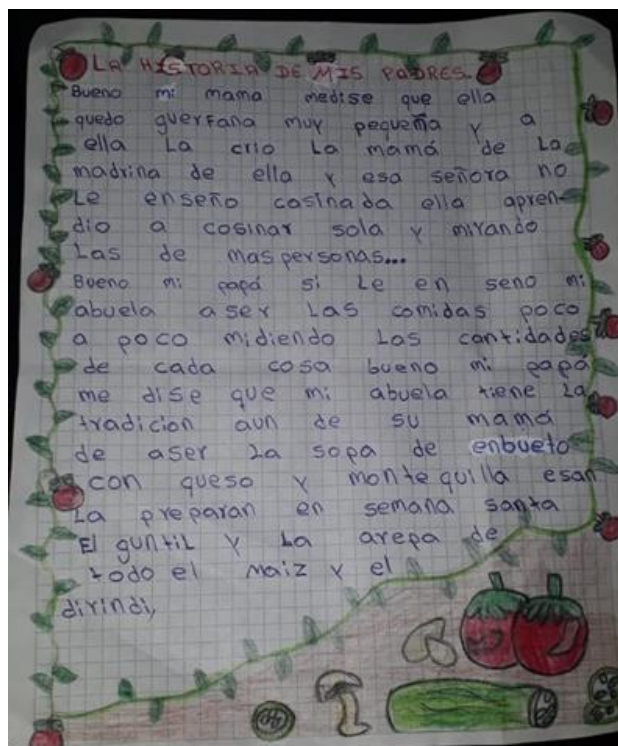 LA HISTORIA DE MIS PADRES.
Bueno mi mama medise que ella
quedo guerfana muy pequeña y a
ella La crio La mamá de La
madrina de ella y esa señora no
Le enseño cosinada ella apren-
dio a cosinar sola y mirando
Las de mas personas...
Bueno mi papá si Le en seno mi
abuela aser Las comidas poco
a poco midiendo Las cantidades
de cada cosa bueno mi papá
me dise que mi abuela tiene La
tradicion aun de su mamá
de aser La sopa de enbueto
con queso y montequilla esan
La preparan en semana santa
El guntil y La arepa de
todo el maiz y el
dirindi,